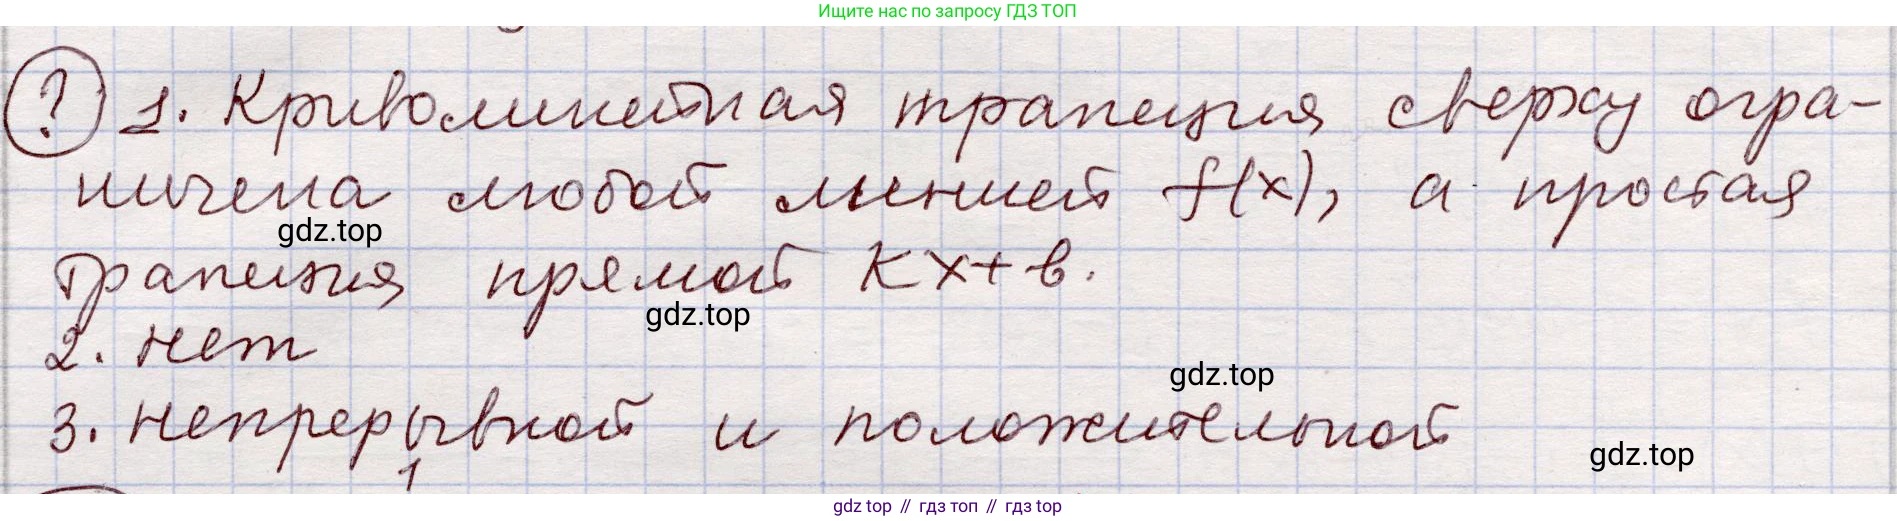 Ищите нас по запросу ГДЗ ТОП
? 1. Криволинейная трапеция сверху огра-
ничена любой линией f(x), а простая
gdz.top
трапеция прямой kx+b.
gdz.top
2. нет
gdz.top
3. непрерывной и положительной
gdz.top
1
gdz top // гдз топ // gdz top